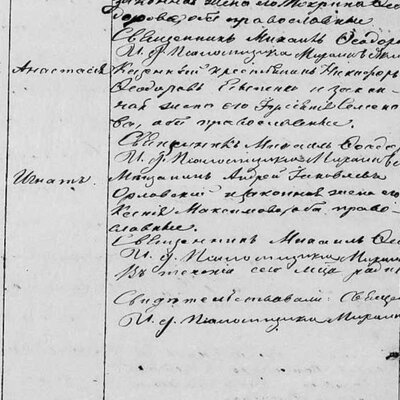 законная жена его Мокрина Ѳео
дорова, оба православные
Священникъ Михаилъ Ѳеодо
И. д. Псаломщика Михаилъ
Анастасія Казенный крестьянинъ Никифоръ
Ѳеодоровъ и закон
ная жена его
ва, оба православные.
Священникъ Михаилъ Ѳеодор
И. д. Псаломщика Михаилъ
Игнатъ. Мѣщанинъ Андрей Яковлевъ
Орловскій и законная жена его
Ксенія Максимова, оба право-
славные.
Священникъ Михаилъ Ѳео
И. д. Псаломщика Михаи
Въ теченіи сего м-ца
Свидѣтельствовали: Священ
И. д. Псаломщика Михаил